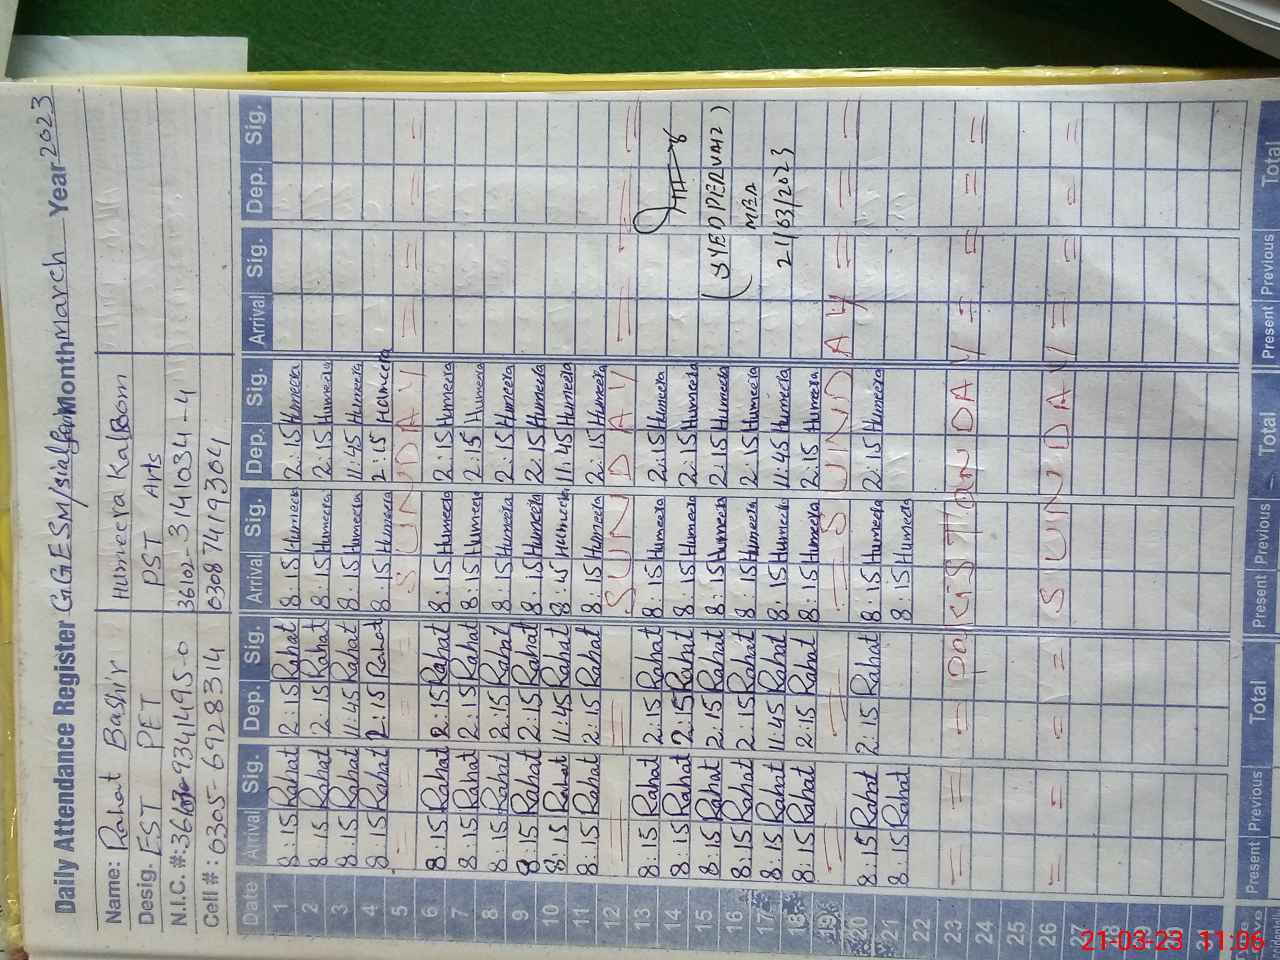 Daily Attendance Register GGESM/sialfam Month March Year 2023
Name: Rahat Bashir Humeera Kalsom
Desig. EST PET PST Arts
N.I.C. #: 9341495-0 36102-3141034-4
Cell #: 0305-6928314 03087419304
Date Arrival Sig. Dep. Sig. Arrival Sig. Dep. Sig. Arrival Sig. Dep. Sig.
1 8:15 Rahat 2:15 Rahat 8:15 Humeera 2:15 Humeera
2 8:15 Rahat 2:15 Rahat 8:15 Humeera 2:15 Humeera
3 8:15 Rahat 11:45 Rahat 8:15 Humeera 11:45 Humeera
4 8:15 Rahat 2:15 Rahat 8:15 Humeera 2:15 Humeera
5 = = = SUNDAY = = = =
6 8:15 Rahat 2:15 Rahat 8:15 Humeera 2:15 Humeera
7 8:15 Rahat 2:15 Rahat 8:15 Humeera 2:15 Humeera
8 8:15 Rahat 2:15 Rahat 8:15 Humeera 2:15 Humeera
9 8:15 Rahat 2:15 Rahat 8:15 Humeera 2:15 Humeera
10 8:15 Rahat 11:45 Rahat 8:15 Humeera 11:45 Humeera
11 8:15 Rahat 2:15 Rahat 8:15 Humeera 2:15 Humeera
12 = SUNDAY = = = =
13 8:15 Rahat 2:15 Rahat 8:15 Humeera 2:15 Humeera
14 8:15 Rahat 2:15 Rahat 8:15 Humeera 2:15 Humeera
15 8:15 Rahat 2:15 Rahat 8:15 Humeera 2:15 Humeera (SYED PERVAIZ)
16 8:15 Rahat 2:15 Rahat 8:15 Humeera 2:15 Humeera MEA
17 8:15 Rahat 11:45 Rahat 8:15 Humeera 11:45 Humeera 21/03/2023
18 8:15 Rahat 2:15 Rahat 8:15 Humeera 2:15 Humeera
19 = = = SUNDAY = = =
20 8:15 Rahat 2:15 Rahat 8:15 Humeera 2:15 Humeera
21 8:15 Rahat 8:15 Humeera
22
23 = = = PakisTan DAY = = = =
24
25
26 = = = = SUNDAY = = = =
27
28
29
30
31
Present Previous Total Present Previous Total Present Previous Total
21-03-23 11:06